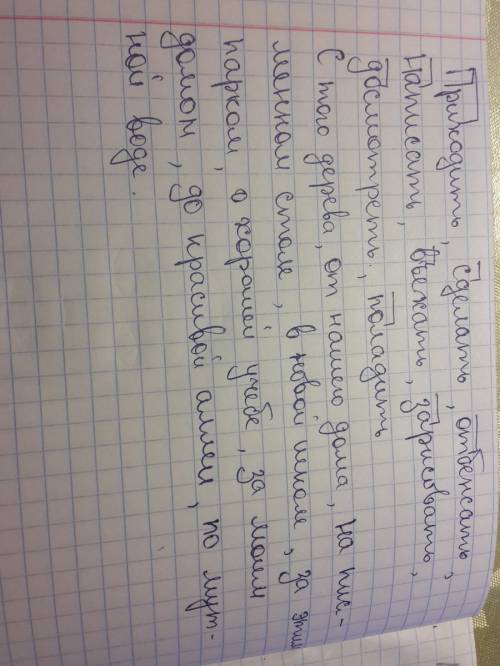 Приходить, сделать, отбежать,
Написать, въехать, зарисовать,
досмотреть, поладить
С того дерева, от нашего дома, на пись-
менном столе, в новой школе, за этим
парком, о хорошей учебе, за моем
домом, до красивой аллеи, по мут-
ной воде.